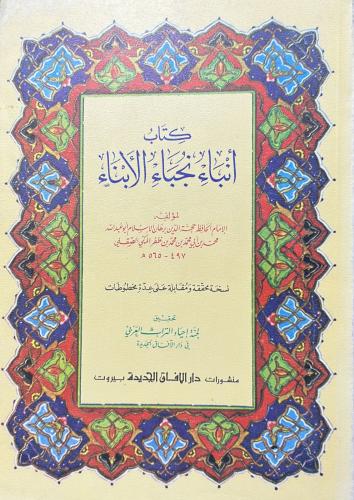 كِتَابُ
أَنْبَاءُ نُجَبَاءِ الأَبْنَاءِ
لمؤلفه
الإمام الحافظ حجة الدين برهان الإسلام أبو عبدالله
محمد بن أبي محمد بن محمد بن ظفر المكي الصقلي
٤٩٧ - ٥٦٥ هـ
نسخة محققة ومقابلة على عدة مخطوطات
تحقيق
لجنة إحياء التراث العربي
في دار الآفاق الجديدة
منشورات دار الآفاق الجديدة بيروت